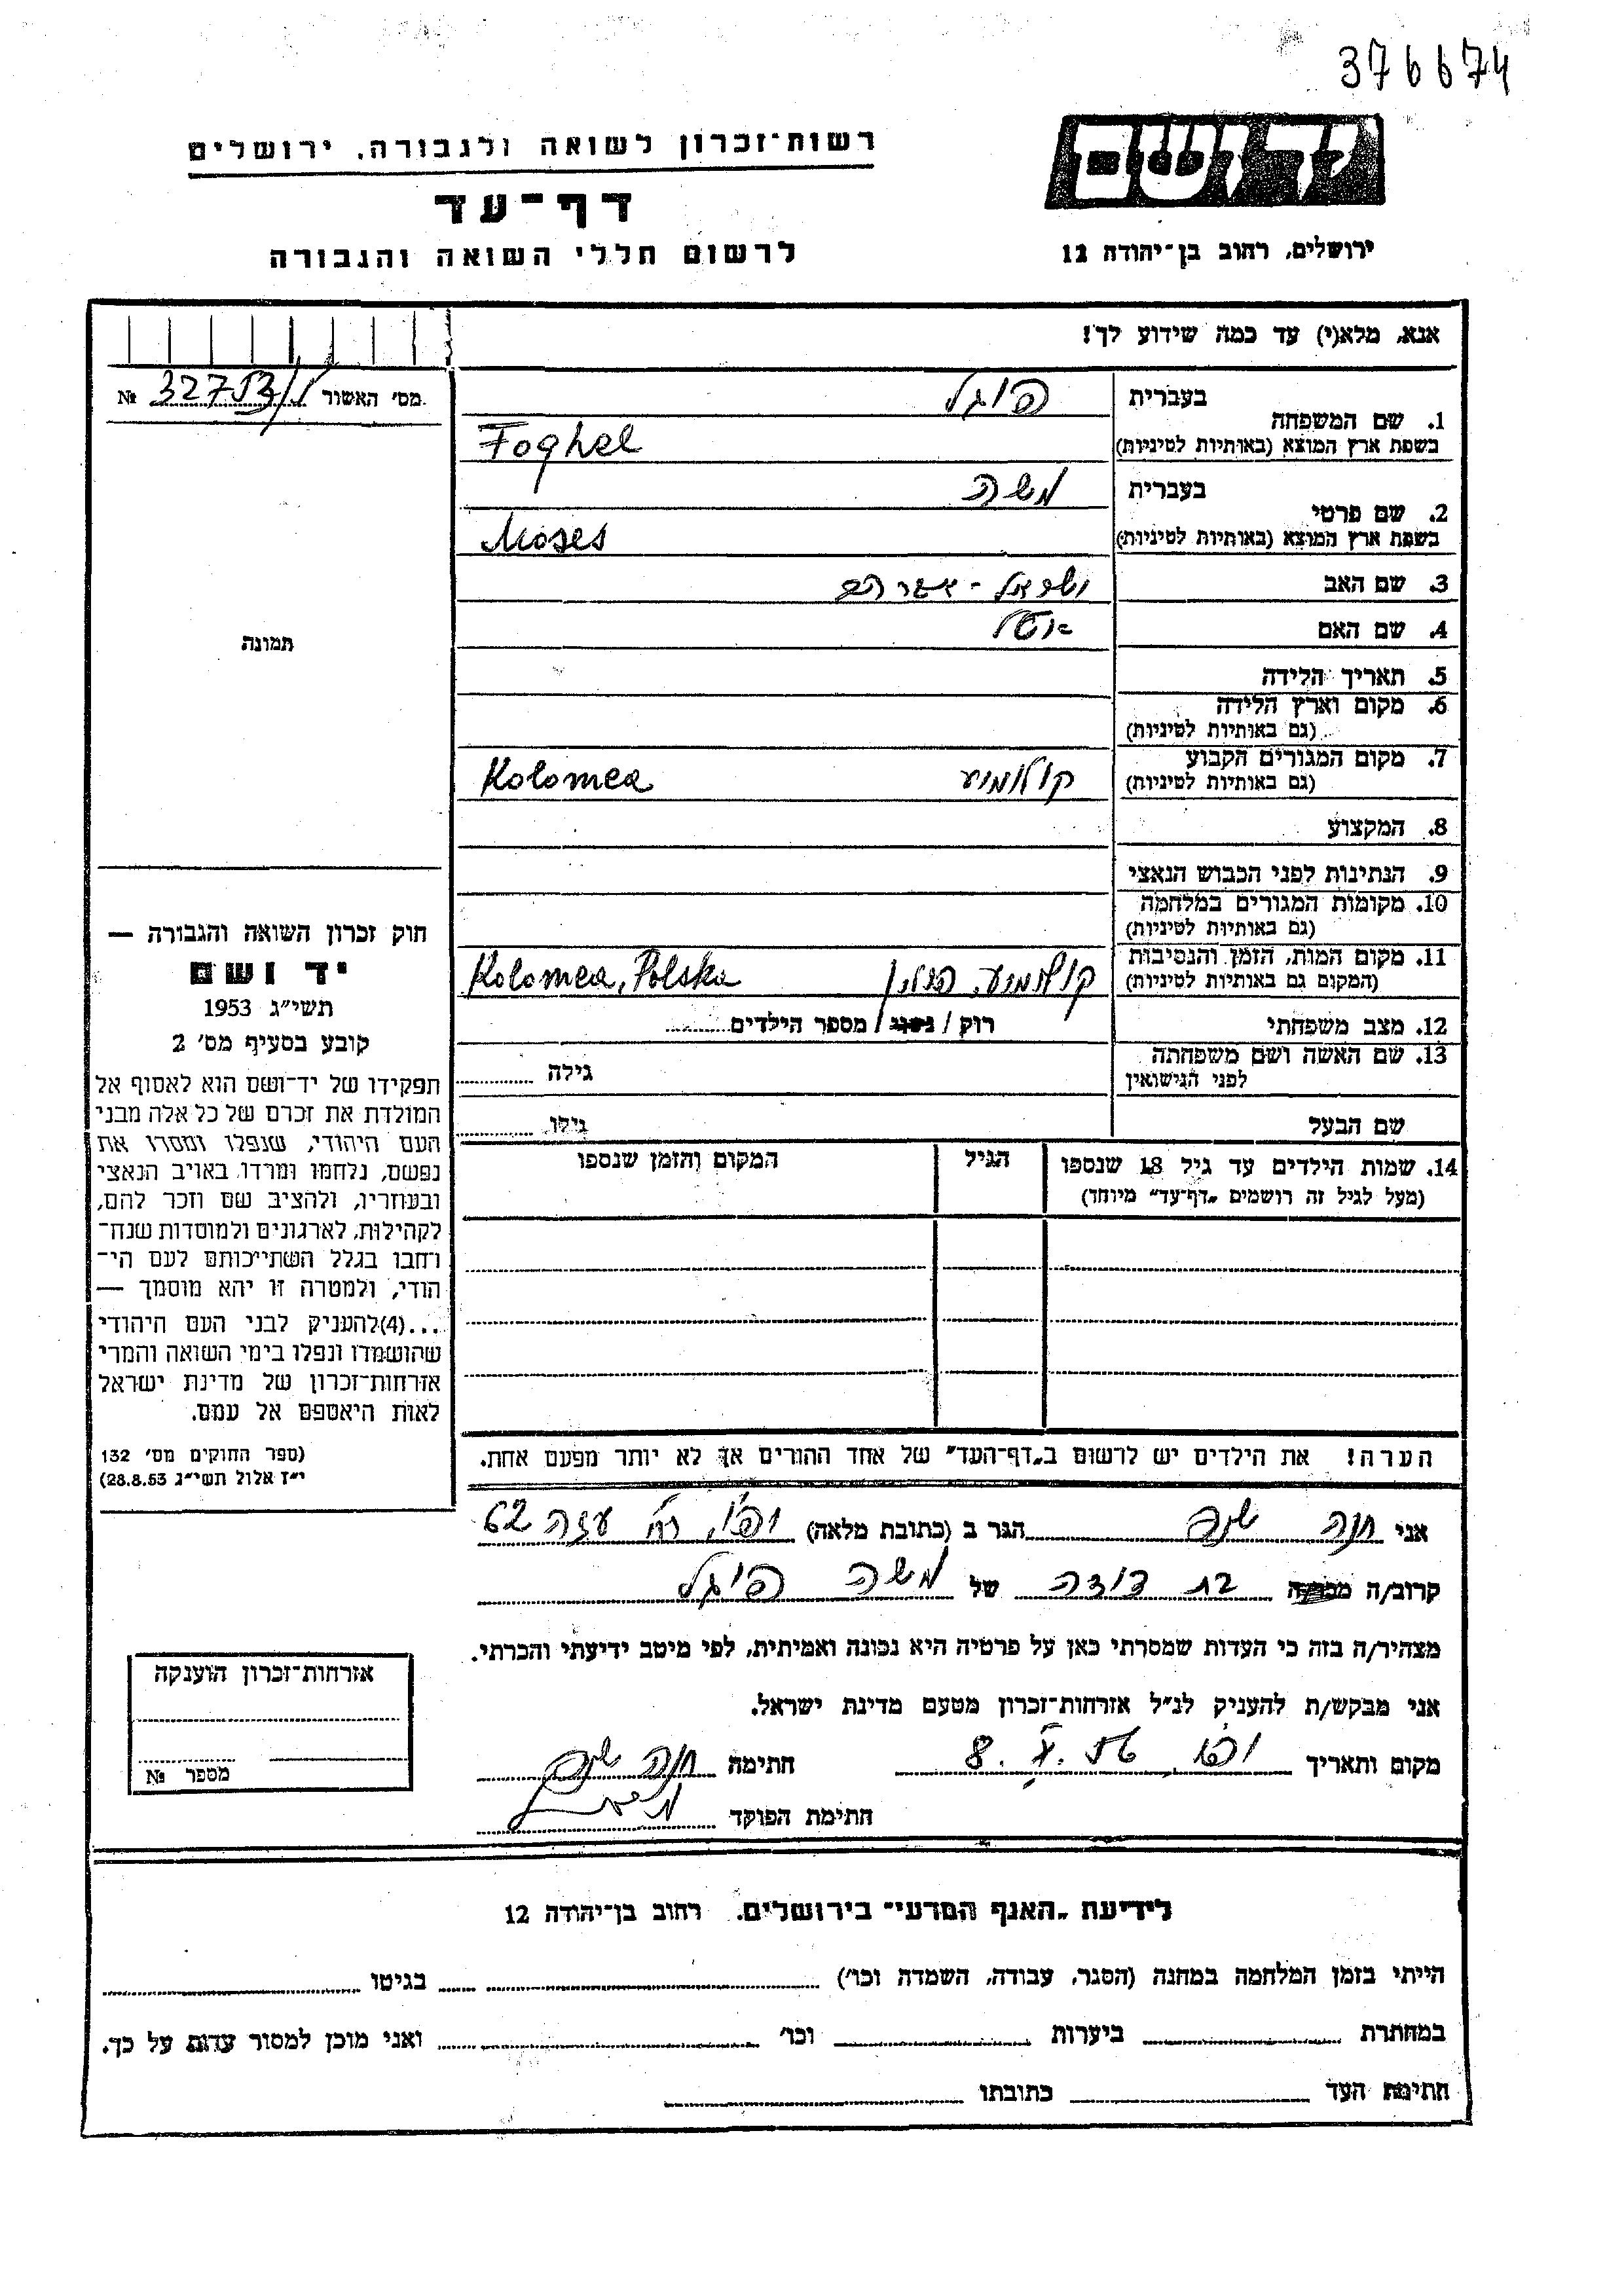 376674
יד ושם
רשות־זכרון לשואה ולגבורה, ירושלים
דף־עד
לרשום חללי השואה והגבורה
ירושלים, רחוב בן־יהודה 12
אנא, מלא(י) עד כמה שידוע לך!
מס׳ האשור № 32753
1. שם המשפחה
בעברית פוגל
בשפת ארץ המוצא (באותיות לטיניות) Foghel
2. שם פרטי
בעברית משה
בשפת ארץ המוצא (באותיות לטיניות) Moses
3. שם האב ישראל -
4. שם האם
5. תאריך הלידה
6. מקום וארץ הלידה
(גם באותיות לטיניות)
7. מקום המגורים הקבוע
(גם באותיות לטיניות) קולומיע Kolomea
8. המקצוע
9. הנתינות לפני הכבוש הנאצי
10. מקומות המגורים במלחמה
(גם באותיות לטיניות)
11. מקום המות, הזמן והנסיבות
(המקום גם באותיות לטיניות) קולומיע, פולין Kolomea, Polska
12. מצב משפחתי רוק / נשוי / מספר הילדים
13. שם האשה ושם משפחתה
לפני הנישואין גילה
שם הבעל גילו
14. שמות הילדים עד גיל 18 שנספו
(מעל לגיל זה רושמים „דף־עד״ מיוחד)
הגיל
המקום והזמן שנספו
הערה! את הילדים יש לרשום ב„דף־העד״ של אחד ההורים אך לא יותר מפעם אחת.
תמונה
חוק זכרון השואה והגבורה —
יד ושם
תשי״ג 1953
קובע בסעיף מס׳ 2
תפקידו של יד־ושם הוא לאסוף אל
המולדת את זכרם של כל אלה מבני
העם היהודי, שנפלו ומסרו את
נפשם, נלחמו ומרדו באויב הנאצי
ובעוזריו, ולהציב שם וזכר להם,
לקהילות, לארגונים ולמוסדות שנח־
רחבו בגלל השתייכותם לעם הי־
הודי, ולמטרה זו יהא מוסמך —
...(4)להעניק לבני העם היהודי
שהושמדו ונפלו בימי השואה והמרי
אזרחות־זכרון של מדינת ישראל
לאות היאספם אל עמם.
(ספר החוקים מס׳ 132
י״ז אלול תשי״ג 28.8.53)
אני חנה הגר ב (כתובת מלאה) יפו, רח׳ עזה 62
קרוב/ה בת דודה של משה פוגל
מצהיר/ה בזה כי העדות שמסרתי כאן על פרטיה היא נכונה ואמיתית, לפי מיטב ידיעתי והכרתי.
אני מבקש/ת להעניק לנ״ל אזרחות־זכרון מטעם מדינת ישראל.
מקום ותאריך יפו, 8. חתימה חנה
חתימת הפוקד
אזרחות־זכרון הוענקה
מספר №
לידיעת „האגף המדעי״ בירושלים. רחוב בן־יהודה 12
הייתי בזמן המלחמה במחנה (הסגר, עבודה, השמדה וכו׳) בגיטו
במחתרת ביערות וכו׳ ואני מוכן למסור עדות על כך.
חתימת העד כתובתו